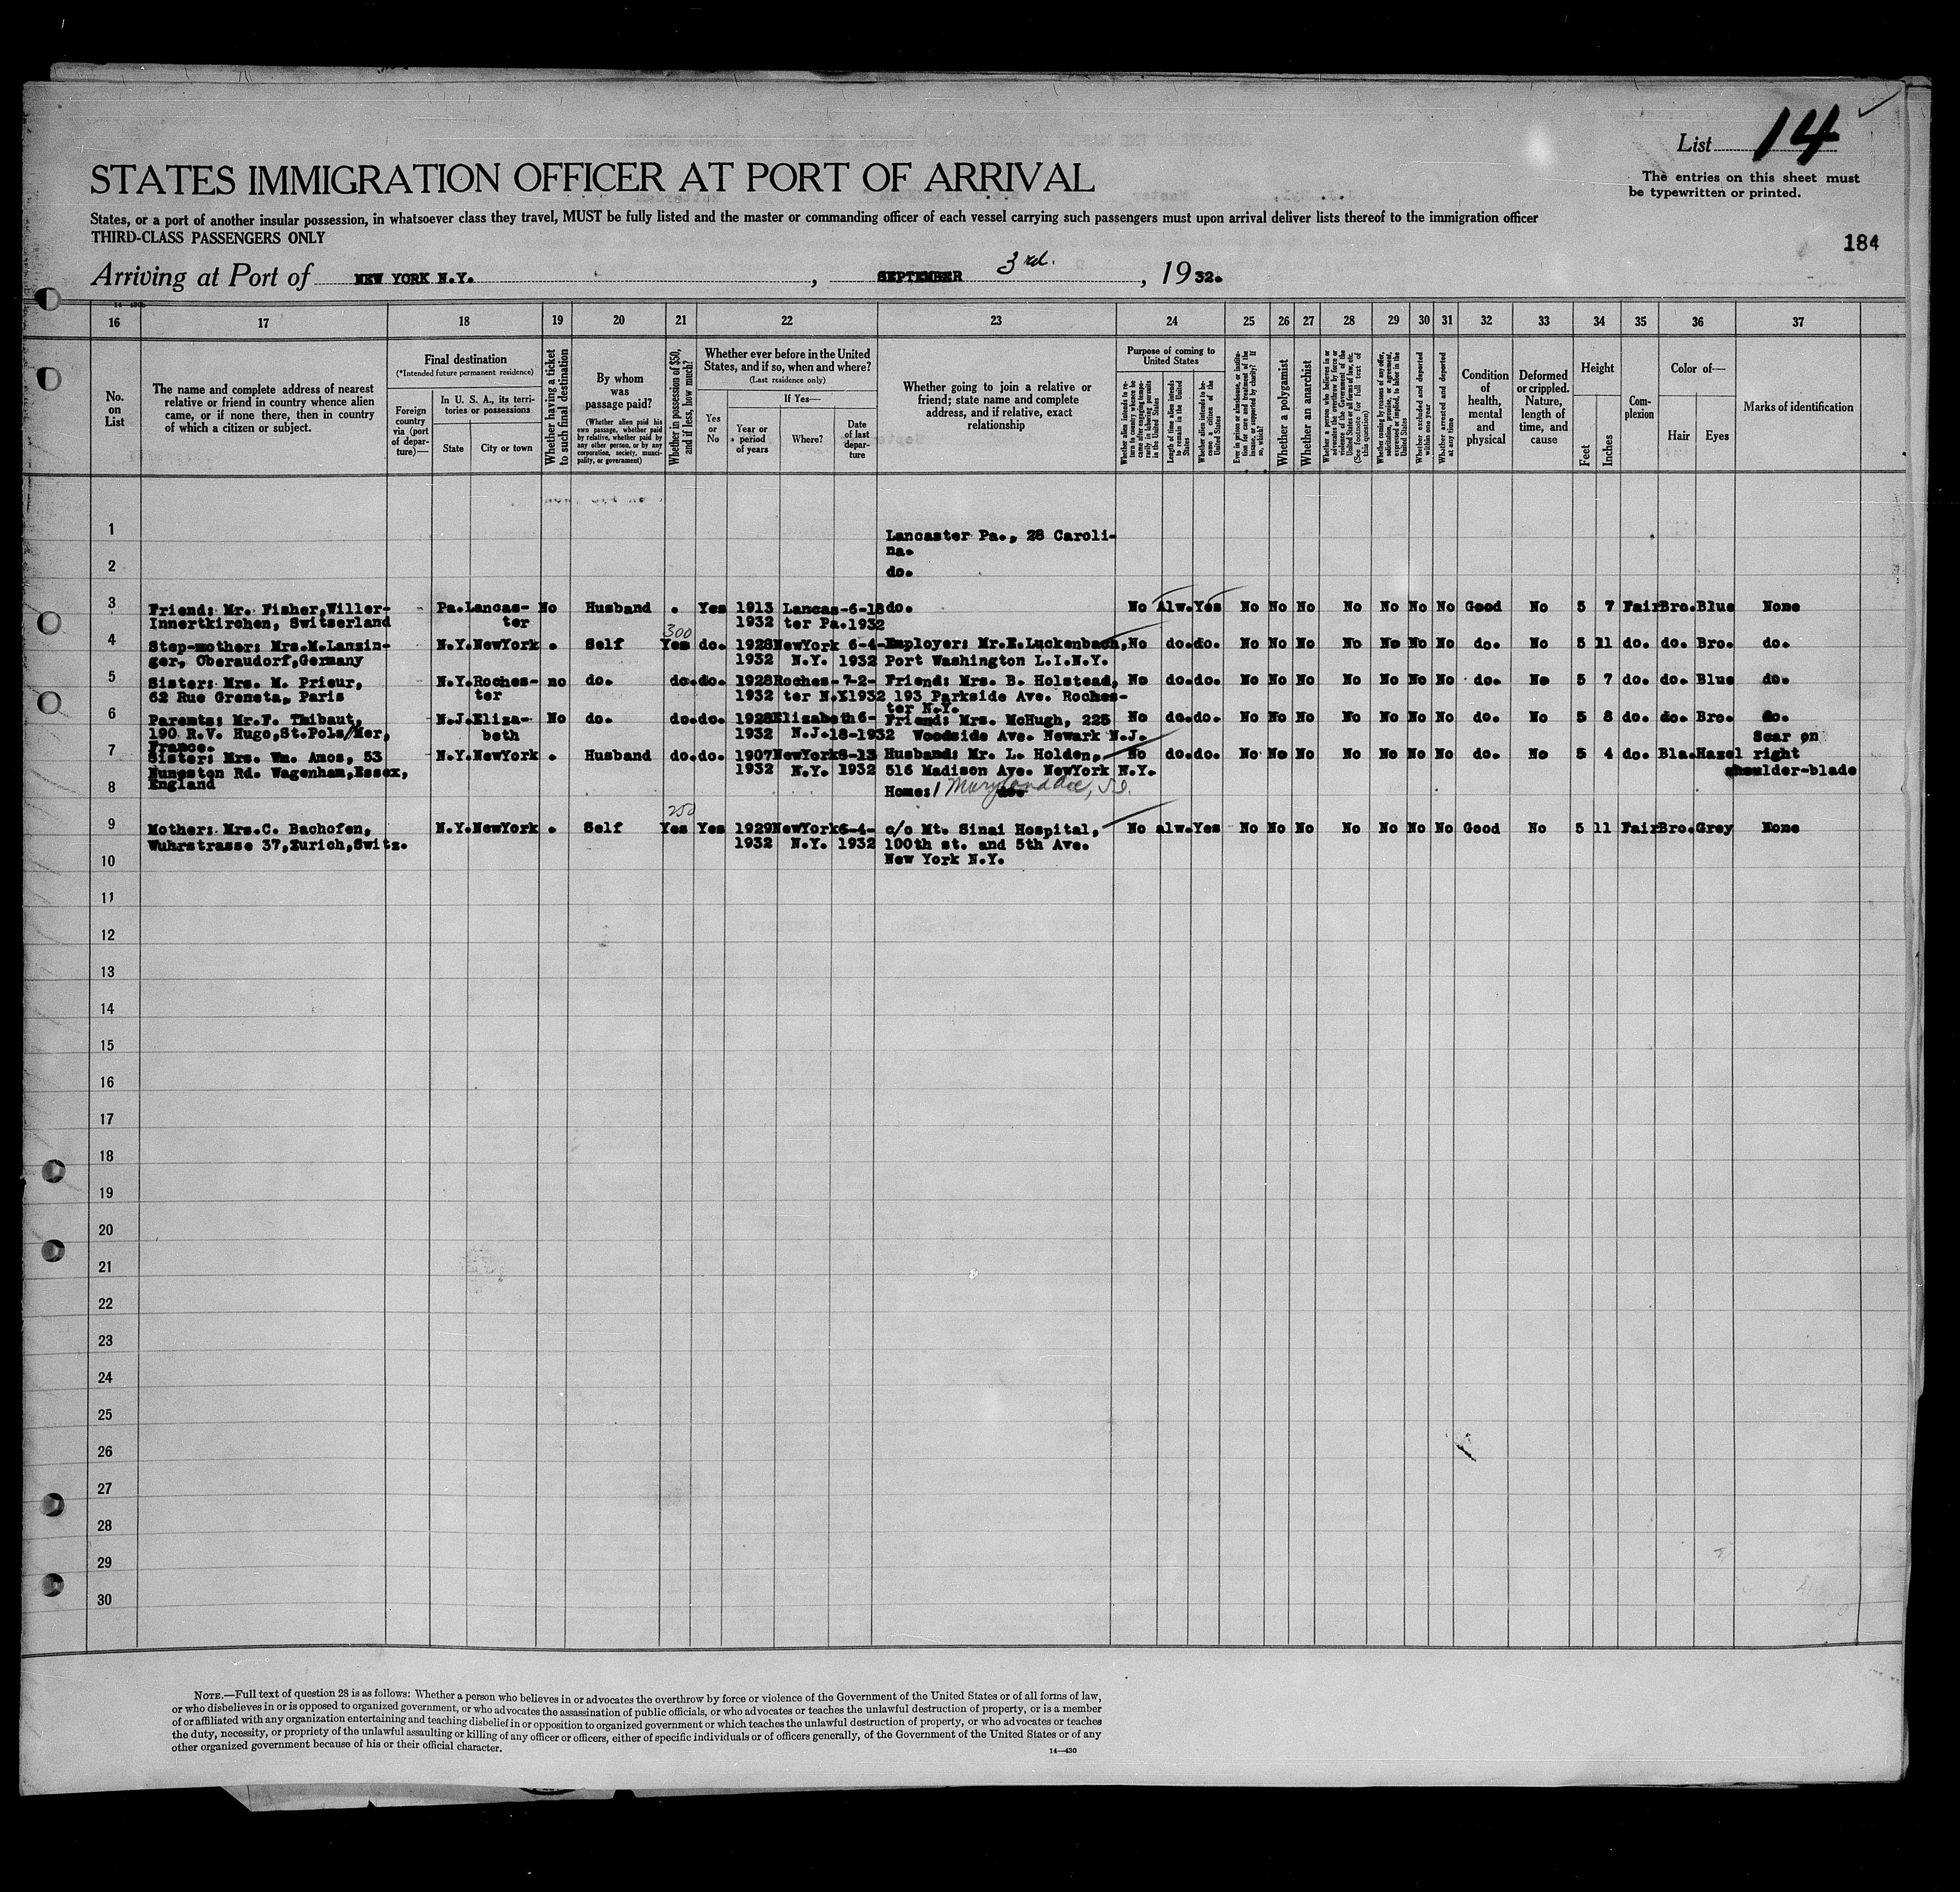 List 14
The entries on this sheet must
be typewritten or printed.
STATES IMMIGRATION OFFICER AT PORT OF ARRIVAL
States, or a port of another insular possession, in whatsoever class they travel, MUST be fully listed and the master or commanding officer of each vessel carrying such passengers must upon arrival deliver lists thereof to the immigration officer
THIRD-CLASS PASSENGERS ONLY
184
Arriving at Port of NEW YORK N.Y. , SEPTEMBER 3rd. , 1932.
16 17 18 19 20 21 22 23 24 25 26 27 28 29 30 31 32 33 34 35 36 37
No. on List
The name and complete address of nearest
relative or friend in country whence alien
came, or if none there, then in country
of which a citizen or subject.
Final destination
(*Intended future permanent residence)
Foreign country via (port of departure)—
In U. S. A., its territories or possessions
State
City or town
Whether having a ticket to such final destination
By whom was passage paid?
(Whether alien paid his own passage, whether paid by relative, whether paid by any other person, or by any corporation, society, municipality, or government)
Whether in possession of $50, and if less, how much?
Whether ever before in the United States, and if so, when and where?
(Last residence only)
Yes or No
If Yes—
Year or period of years
Where?
Date of last departure
Whether going to join a relative or
friend; state name and complete
address, and if relative, exact
relationship
Purpose of coming to United States
Whether alien intends to return to country whence he came after engaging temporarily in laboring pursuits in the United States
Length of time alien intends to remain in the United States
Whether alien intends to become a citizen of the United States
Ever in prison or almshouse, or institution for care and treatment of the insane, or supported by charity? If so, which?
Whether a polygamist
Whether an anarchist
Whether a person who believes in or advocates the overthrow by force or violence of the Government of the United States or all forms of law, etc. (See footnote for full text of this question)
Whether coming by reasons of any offer, solicitation, promise, or agreement, expressed or implied, to labor in the United States
Whether excluded and deported within one year
Whether arrested and deported at any time
Condition of health, mental and physical
Deformed or crippled. Nature, length of time, and cause
Height
Feet
Inches
Complexion
Color of—
Hair
Eyes
Marks of identification
1 Lancaster Pa., 28 Caroli-
na.
2 do.
3 Friend: Mr. Fisher,Willer- Pa. Lancas- No Husband . Yes 1913 Lancas- 6-18 do. No Alw. Yes No No No No No No No Good No 5 7 Fair Bro. Blue None
Innertkirchen, Switzerland ter 1932 ter Pa. 1932
300
4 Step-mother: Mrs.M.Lanzin- N.Y. NewYork . Self Yes do. 1928 NewYork 6-4- Employer: Mr.E.Luckenbach, No do. do. No No No No No No No do. No 5 11 do. do. Bro. do.
ger, Oberaudorf,Germany 1932 N.Y. 1932 Port Washington L.I.N.Y.
5 Sister: Mrs. M. Prieur, N.Y. Roches- no do. do. do. 1928 Roches- 7-2- Friend: Mrs. B. Holstead, No do. do. No No No No No No No do. No 5 7 do. do. Blue do.
62 Rue Greneta, Paris ter 1932 ter N.Y. 1932 193 Parkside Ave. Roches-
ter N.Y.
6 Parents: Mr.F. Thibaut, N.J. Eliza- No do. do. do. 1928 Elizabeth 6- Friend: Mrs. McHugh, 225 No do. do. No No No No No No No do. No 5 8 do. do. Bro. do.
190 R.V. Hugo,St.Pols/Mer, beth 1932 N.J. 18-1932 Woodside Ave. Newark N.J.
France.
Scar on
7 Sister: Mrs. Wm. Amos, 53 N.Y. NewYork . Husband do. do. 1907 NewYork 8-13 Husband: Mr. L. Holden, No do. do. No No No No No No No do. No 5 4 do. Bla. Hazel right
Rd. Wagenham,Essex, 1932 N.Y. 1932 516 Madison Ave. NewYork N.Y. shoulder-blade
England
8 Home: Maryland Ave,
250
9 Mother: Mrs.C. Bachofen, N.Y. NewYork . Self Yes Yes 1929 NewYork 6-4- c/o Mt. Sinai Hospital, No alw. Yes No No No No No No No Good No 5 11 Fair Bro. Grey None
Wuhrstrasse 37,Zurich,Switz. 1932 N.Y. 1932 100th st. and 5th Ave.
New York N.Y.
10
11
12
13
14
15
16
17
18
19
20
21
22
23
24
25
26
27
28
29
30
NOTE.—Full text of question 28 is as follows: Whether a person who believes in or advocates the overthrow by force or violence of the Government of the United States or of all forms of law,
or who disbelieves in or is opposed to organized government, or who advocates the assassination of public officials, or who advocates or teaches the unlawful destruction of property, or is a member
of or affiliated with any organization entertaining and teaching disbelief in or opposition to organized government or which teaches the unlawful destruction of property, or who advocates or teaches
the duty, necessity, or propriety of the unlawful assaulting or killing of any officer or officers, either of specific individuals or of officers generally, of the Government of the United States or of any
other organized government because of his or their official character.
14—430